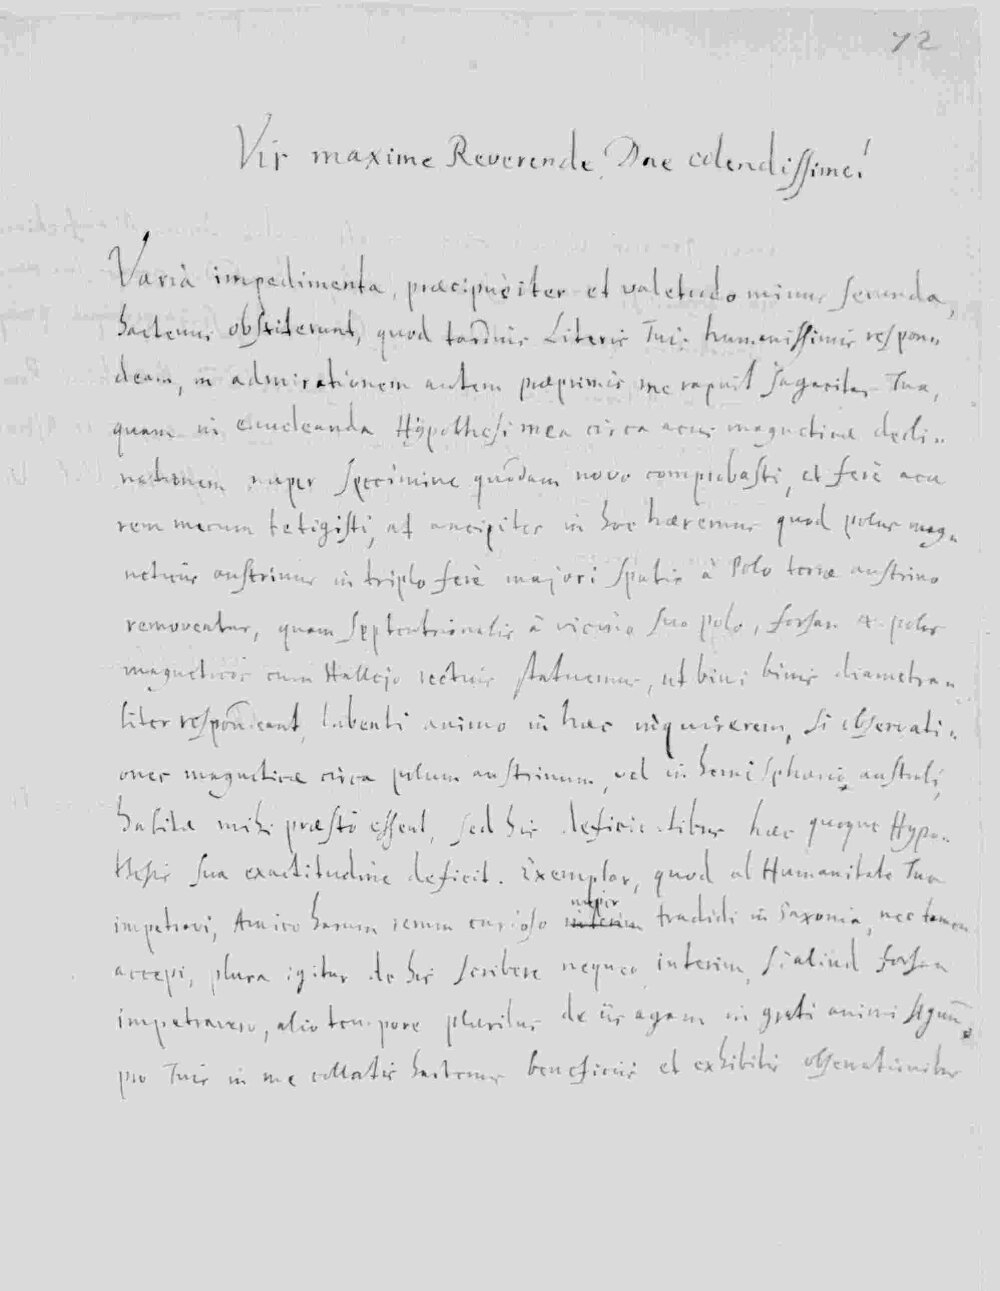 72
Vir maxime Reverende, Dne colendissime!
Varia impedimenta, praecipuè iter et valetudo minus secunda,
hactenus obstiterunt, quod tardius Literis Tuis humanissimis respon-
deam, in admirationem autem praeprimis me rapuit sagacitas Tua,
quam in enucleanda Hÿpothesi mea circa acus magneticae decli-
nationem nuper specimine quodam novo comprobasti, et ferè acu
rem mecum tetigisti, at ancipites in hoc haeremus quod polus mag-
neticus austrinus in triplo ferè majori spatio à Polo terrae austrino
removeatur, quam septentrionalis à vicino suo polo, forsan 4 polos
magneticos cum Hallejo rectius statuemus, ut bini binis diametra-
liter respondeant, lubenti animo in haec inquirerem, si observati-
ones magneticae circa polum austrinum, vel in hemisphaerio australi,
habitae mihi praestò essent, sed his deficientibus haec quoque Hypo-
thesis sua exactitudine deficit. Exemplar, quod ab Humanitate Tua
impetravi, Amico harum rerum curioso nuper tradidi in Saxonia, nec tamen
accepi, plura igitur de his scribere nequeo interim, si aliud forsan
impetravero, alio tempore pluribus de iis agam in grati animi signum
pro Tuis in me collatis hactenus beneficiis et exhibitis observationibus